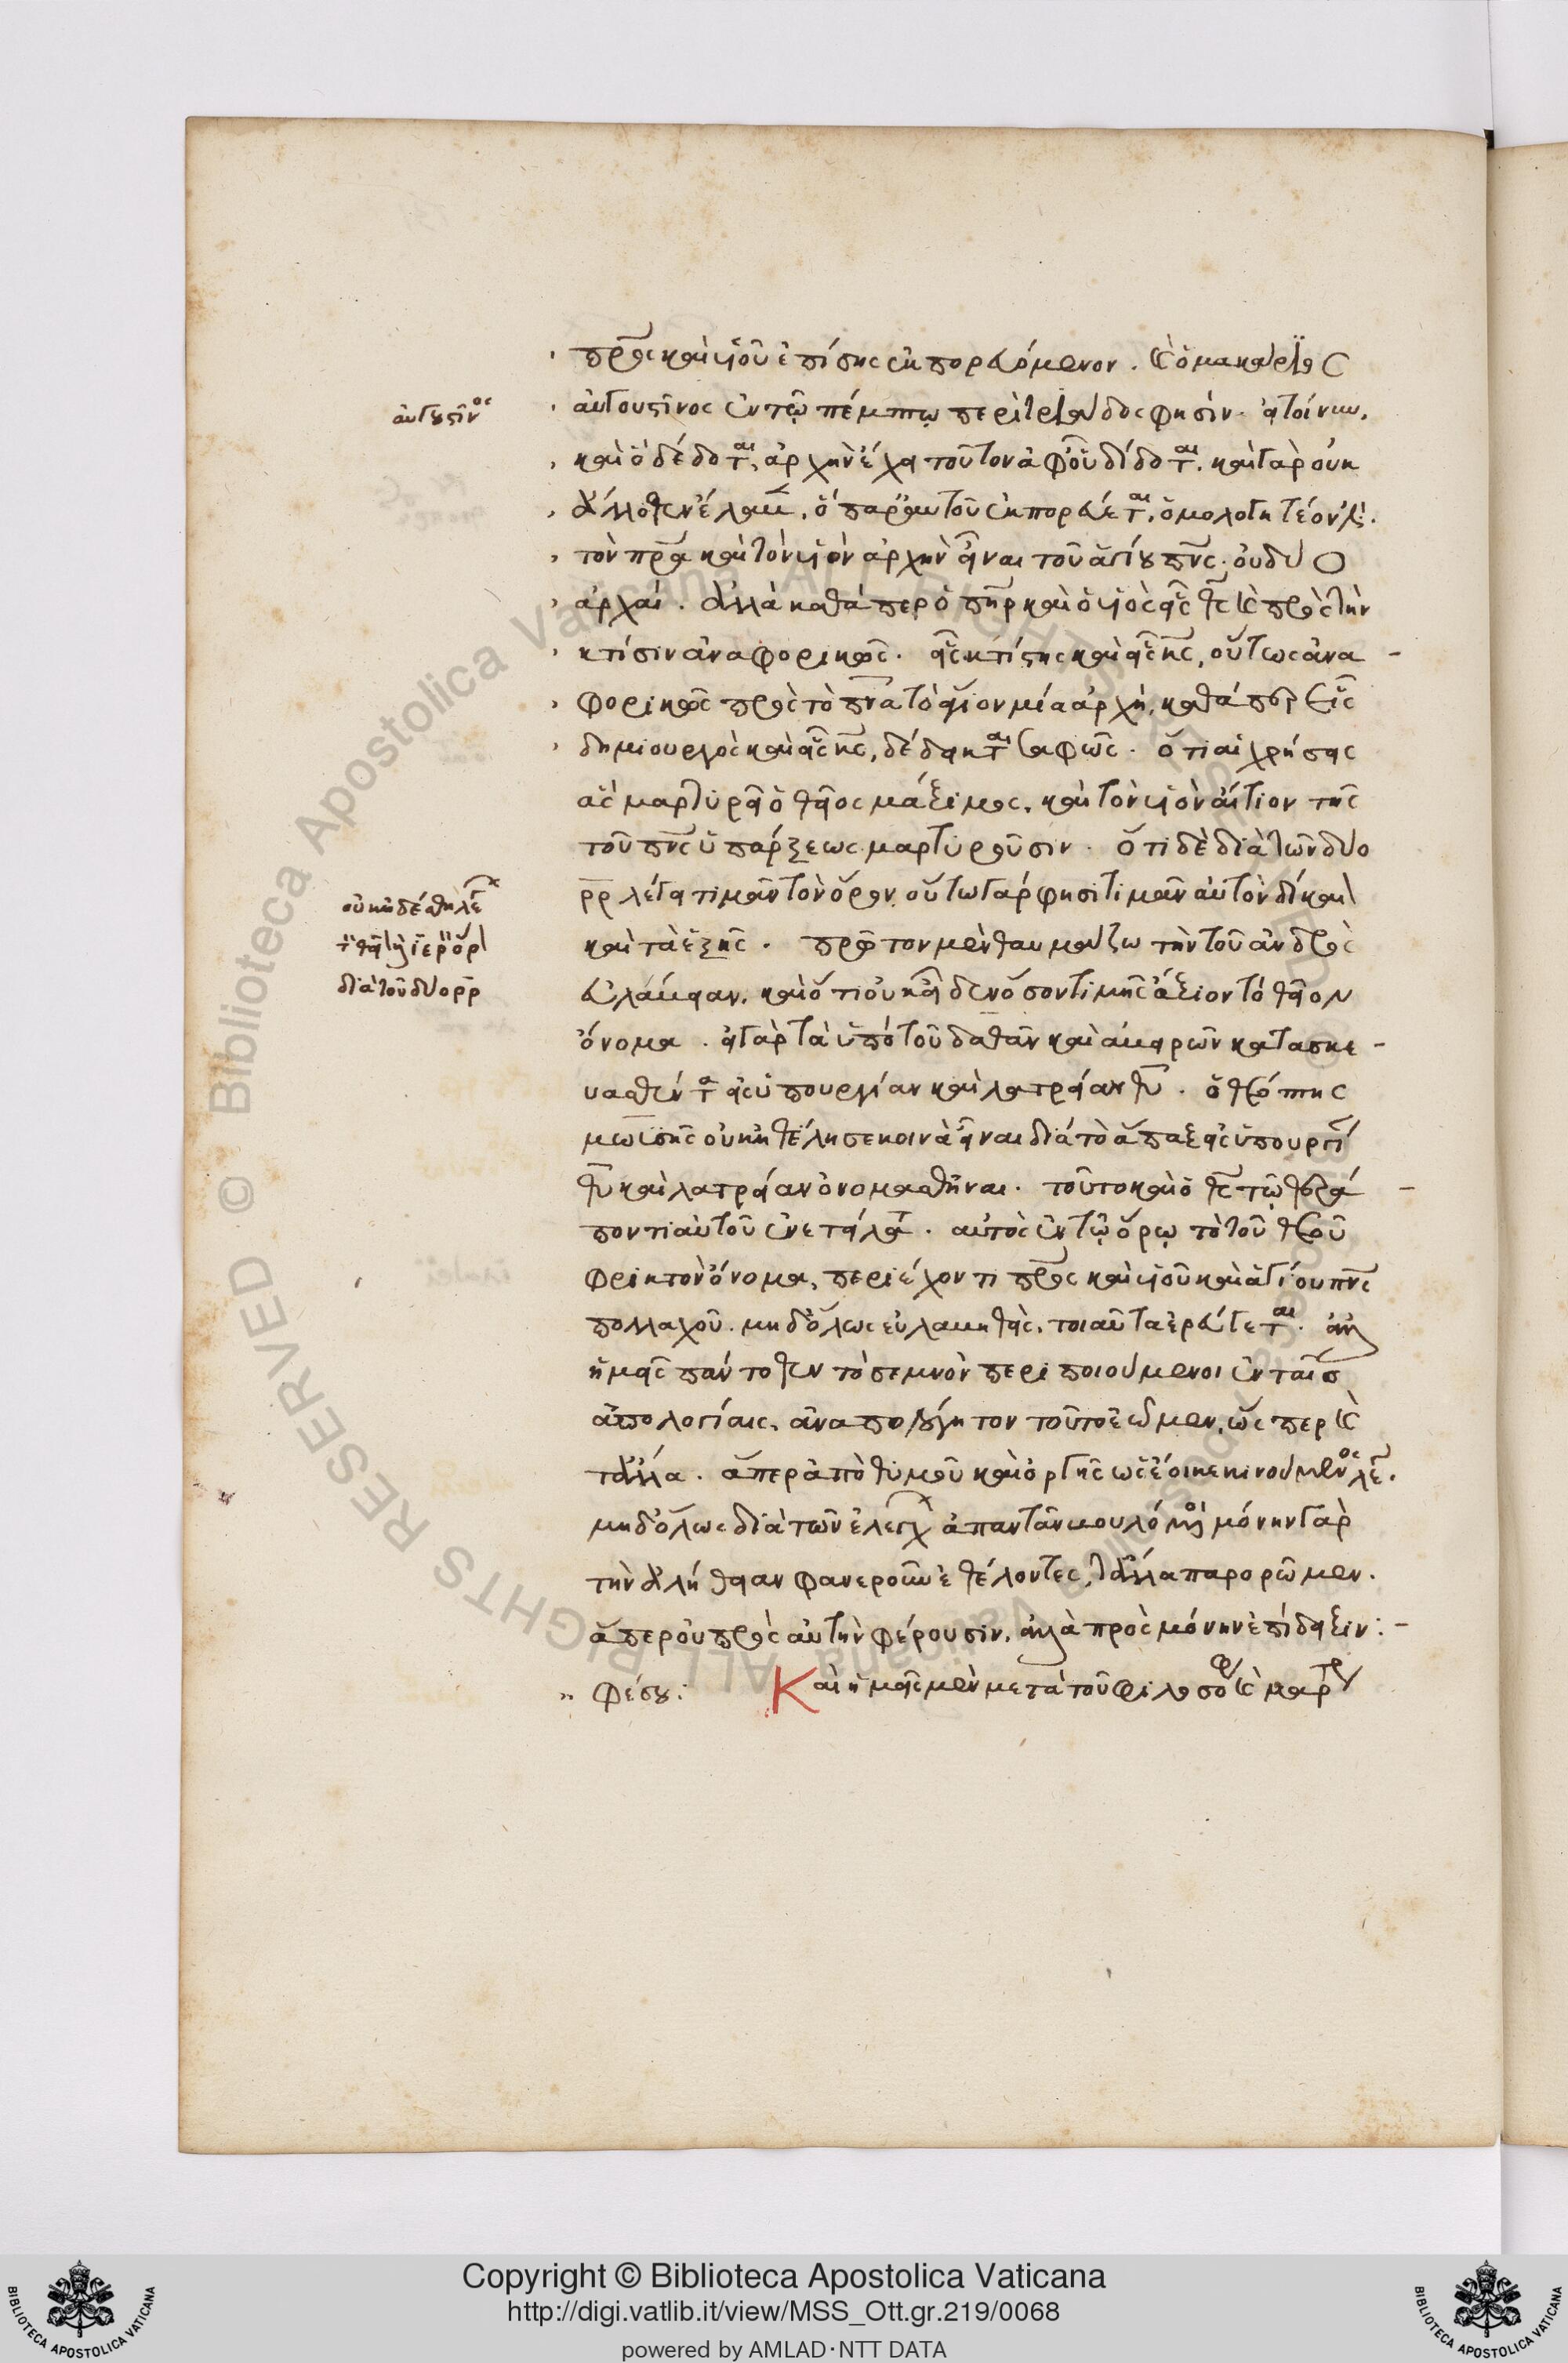 πρς καὶ υἱοῦ ἐπίσης ἐκπορευόμενον. καὶ ὁ μακάριος
αὐγουστῖνος
αὐγουστῖνος ἐν τῷ πέμπτῳ περὶ τριάδος φησίν. εἰ τοίνυν
καὶ ὃ δέδοται, ἀρχὴν ἔχει τοῦτον ἀφ' οὗ δίδοται. καὶ γὰρ οὐκ
ἄλλοθεν ἔλαβε, ὃ παρ' αὐτοῦ ἐκπορεύεται, ὁμολογητέον
τὸν πρα καὶ τὸν υἱὸν ἀρχὴν εἶναι τοῦ ἁγίου πνς. οὐ δύο
ἀρχαί. ἀλλὰ καθάπερ ὁ πηρ καὶ ὁ υἱὸς εἷς θς καὶ πρὸς τὴν
κτίσιν ἀναφορικῶς. εἷς κτίστης καὶ εἷς κς, οὕτως ἀνα-
φορικῶς πρὸς τὸ πνα τὸ ἅγιον μία ἀρχή, καθάπερ εἷς
δημιουργὸς καὶ εἷς κς, δέδεικται σαφῶς. ὅτι αἱ χρήσεις
ἃς μαρτυρεῖ ὁ θεῖος μάξιμος, καὶ τὸν υἱὸν αἴτιον τῆς
τοῦ πνς ὑπάρξεως μαρτυροῦσιν. ὅτι δὲ διὰ τῶν δύο
ρρ λέγει τιμᾶν τὸν ὅρον, οὕτω γάρ φησι τιμᾶν αὐτὸν δίκαι
καὶ τὰ ἑξῆς. πρῶτον μὲν θαυμάζω τὴν τοῦ ἀνδρὸς
διὰ τοῦ δύο ρρ
εὐλάβειαν, καὶ ὅτι οὐκ οἶδεν ὅσον τιμῆς ἄξιον τὸ θεῖον
ὄνομα. εἰ γὰρ τὰ ὑπὸ τοῦ δαθὰν καὶ ἀβειρὼν κατασκε-
υασθέντα εἰς ὑπουργίαν καὶ λατρείαν θυ. ὁ θεόπτης
μωϋσῆς οὐκ ἠθέλησε κοινὰ εἶναι διὰ τὸ ἅπαξ εἰς ὑπουργί
θυ καὶ λατρείαν ὀνομασθῆναι. τοῦτο καὶ ὁ θς τῷ θερά-
ποντι αὐτοῦ ἐνετείλατ. αὐτὸς ἐν τῷ ὅρῳ τὸ τοῦ θεοῦ
φρικτὸν ὄνομα, περιέχοντι πρς καὶ υἱοῦ καὶ ἁγίου πνς
πολλαχοῦ. μηδ' ὅλως εὐλαβηθείς, τοιαῦτα ἐρεύγεται. ἀλλ
ἡμεῖς πάντοθεν τὸ σεμνὸν περιποιούμενοι ἐν ταῖς
ἀπολογίαις, ἀναπολόγητον τοῦτο ἐῶμεν, ὥσπερ καὶ
τἄλλα. ἅπερ ἀπὸ θυμοῦ καὶ ὀργῆς ὡς ἔοικε κινούμενος λέγ.
μηδ' ὅλως διὰ τῶν ἐλέγχ ἀπαντᾶν βουλόμενοι μόνην γὰρ
τὴν ἀλήθειαν φανεροῦν ἐθέλοντες, τἄλλα παρορῶμεν.
ἅπερ οὐ πρὸς αὐτὴν φέρουσιν, ἀλλὰ πρὸς μόνην ἐπίδειξιν:-
ἐφέσου: Καὶ ἡμεῖς μὲν μετὰ τοῦ φιλοσόφου καὶ μάρτυ
Copyright © Biblioteca Apostolica Vaticana
http://digi.vatlib.it/view/MSS_Ott.gr.219/0068
powered by AMLAD·NTT DATA
BIBLIOTECA APOSTOLICA VATICANA
BIBLIOTECA APOSTOLICA VATICANA